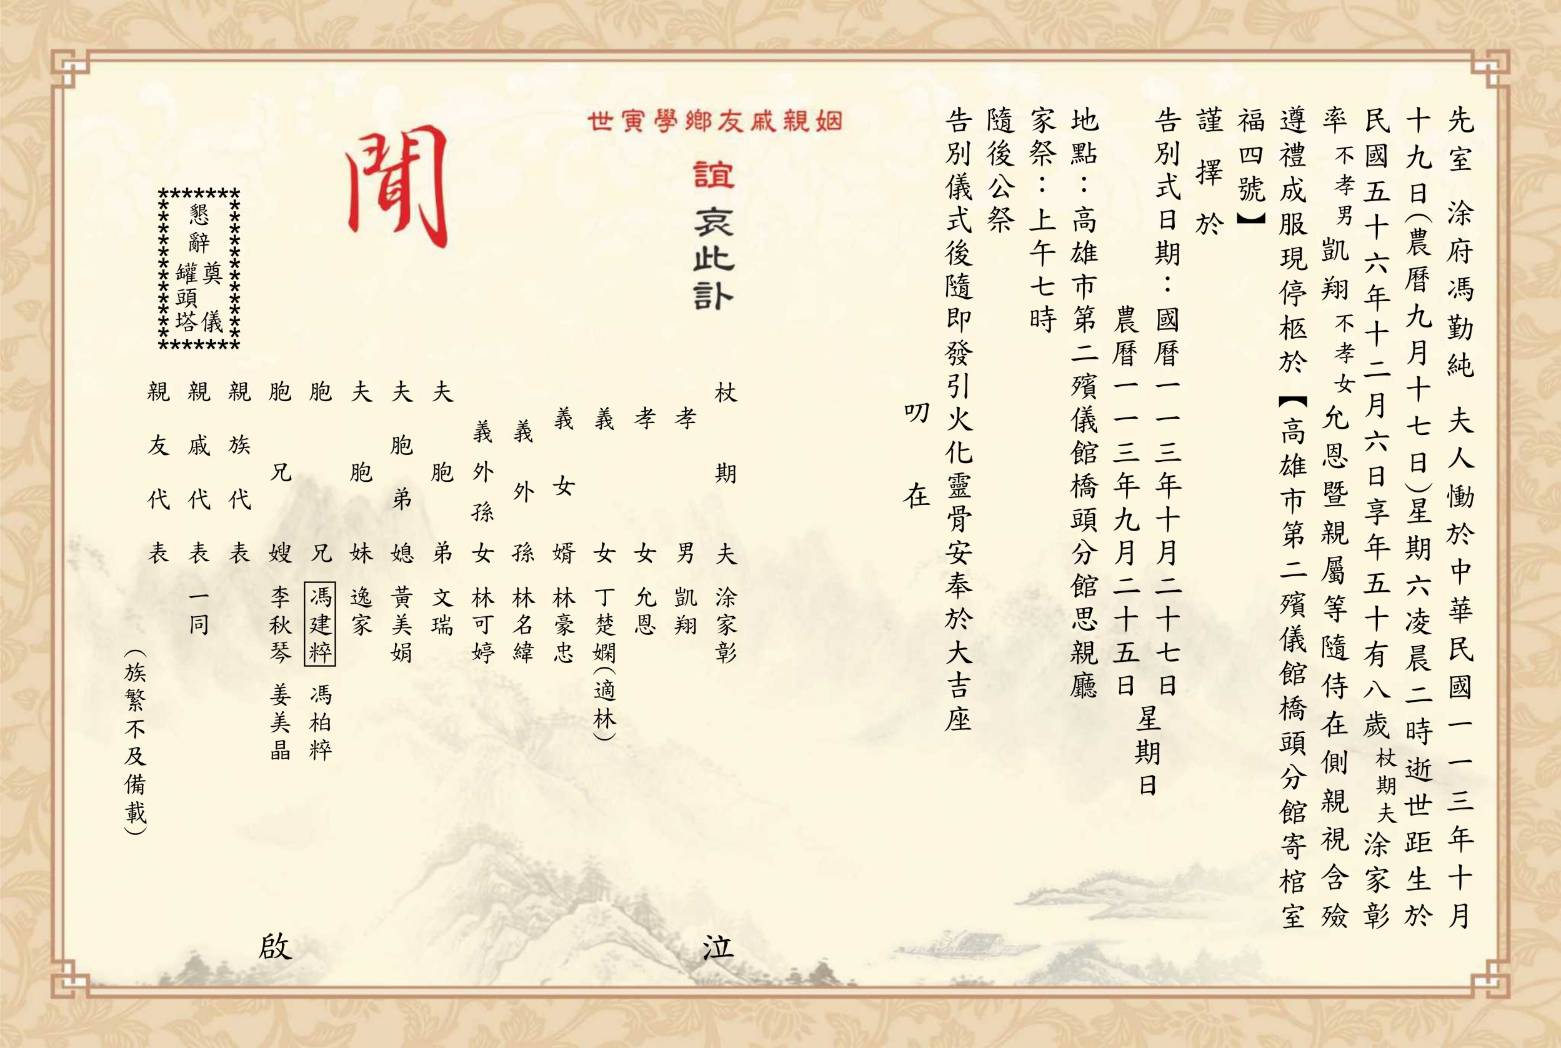 先室 涂府馮勤純 夫人慟於中華民國一一三年十月
十九日(農曆九月十七日)星期六凌晨二時逝世距生於
民國五十六年十二月六日享年五十有八歲 杖期夫 涂家彰
率 不孝男 凱翔 不孝女 允恩暨親屬等隨侍在側親視含殮
遵禮成服現停柩於【高雄市第二殯儀館橋頭分館寄棺室
福四號】
謹擇於
告別式日期：國曆一一三年十月二十七日
農曆一一三年九月二十五日
星期日
地點：高雄市第二殯儀館橋頭分館思親廳
家祭：上午七時
隨後公祭
告別儀式後隨即發引火化靈骨安奉於大吉座
叨在
世寅學鄉友戚親姻
誼哀此訃
聞
杖期夫 涂家彰
孝男 凱翔
孝女 允恩
義女 丁楚嫻(適林)
義女婿 林豪忠
義外孫 林名緯
義外孫女 林可婷
夫胞弟 文瑞
夫胞弟媳 黃美娟
夫胞妹 逸家
胞兄 馮建粹 馮柏粹
胞兄嫂 李秋琴 姜美晶
親族代表
親戚代表 一同
親友代表
(族繁不及備載)
泣
啟
*******
懇辭
奠儀
罐頭塔
*******